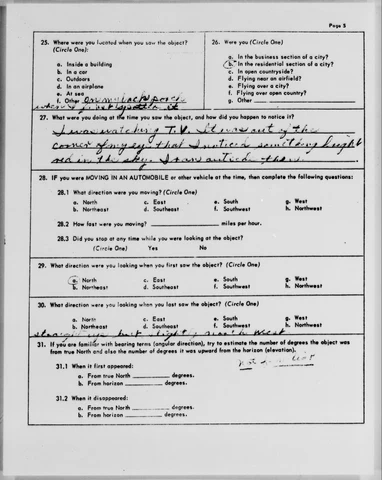 Page 5
25. Where were you located when you saw the object?
(Circle One):
a. Inside a building
b. In a car
c. Outdoors
d. In an airplane
e. At sea
f. Other on my back porch
where I first spotted it
26. Were you (Circle One)
a. In the business section of a city?
b. In the residential section of a city?
c. In open countryside?
d. Flying near an airfield?
e. Flying over a city?
f. Flying over open country?
g. Other
27. What were you doing at the time you saw the object, and how did you happen to notice it?
I was watching T.V. It was out of the
corner of my eye that I notice something bright
red in the sky. I ran outside then.
28. IF you were MOVING IN AN AUTOMOBILE or other vehicle at the time, then complete the following questions:
28.1 What direction were you moving? (Circle One)
a. North c. East e. South g. West
b. Northeast d. Southeast f. Southwest h. Northwest
28.2 How fast were you moving? miles per hour.
28.3 Did you stop at any time while you were looking at the object?
(Circle One) Yes No
29. What direction were you looking when you first saw the object? (Circle One)
a. North c. East e. South g. West
b. Northeast d. Southeast f. Southwest h. Northwest
30. What direction were you looking when you last saw the object? (Circle One)
a. North c. East e. South g. West
b. Northeast d. Southeast f. Southwest h. Northwest
straight up but slightly north West
31. If you are familiar with bearing terms (angular direction), try to estimate the number of degrees the object was
from true North and also the number of degrees it was upward from the horizon (elevation).
31.1 When it first appeared:
a. From true North degrees.
b. From horizon degrees.
31.2 When it disappeared:
a. From true North degrees.
b. From horizon degrees.